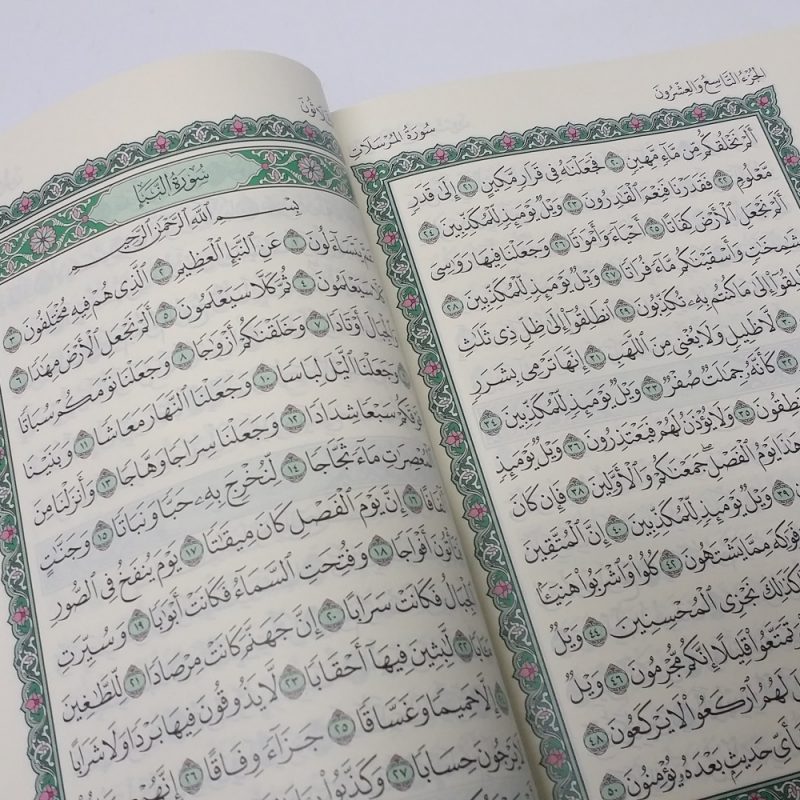 الجزء التاسع والعشرون
سورة المرسلات
أَلَمْ نَخْلُقكُّم مِّن مَّآءٍ مَّهِينٍ ٢٠ فَجَعَلْنَٰهُ فِى قَرَارٍ مَّكِينٍ ٢١ إِلَىٰ قَدَرٍ
مَّعْلُومٍ ٢٢ فَقَدَرْنَا فَنِعْمَ ٱلْقَٰدِرُونَ ٢٣ وَيْلٌ يَوْمَئِذٍ لِّلْمُكَذِّبِينَ ٢٤
أَلَمْ نَجْعَلِ ٱلْأَرْضَ كِفَاتًا ٢٥ أَحْيَآءً وَأَمْوَٰتًا ٢٦ وَجَعَلْنَا فِيهَا رَوَٰسِىَ
شَٰمِخَٰتٍ وَأَسْقَيْنَٰكُم مَّآءً فُرَاتًا ٢٧ وَيْلٌ يَوْمَئِذٍ لِّلْمُكَذِّبِينَ ٢٨
إِلَىٰ مَا كُنتُم بِهِۦ تُكَذِّبُونَ ٢٩ ٱنطَلِقُوٓا۟ إِلَىٰ ظِلٍّ ذِى ثَلَٰثِ
لَّا ظَلِيلٍ وَلَا يُغْنِى مِنَ ٱللَّهَبِ ٣١ إِنَّهَا تَرْمِى بِشَرَرٍ
٣٢ كَأَنَّهُۥ جِمَٰلَتٌ صُفْرٌ ٣٣ وَيْلٌ يَوْمَئِذٍ لِّلْمُكَذِّبِينَ ٣٤
٣٥ وَلَا يُؤْذَنُ لَهُمْ فَيَعْتَذِرُونَ ٣٦ وَيْلٌ يَوْمَئِذٍ
هَٰذَا يَوْمُ ٱلْفَصْلِ جَمَعْنَٰكُمْ وَٱلْأَوَّلِينَ ٣٨ فَإِن كَانَ
٣٩ وَيْلٌ يَوْمَئِذٍ لِّلْمُكَذِّبِينَ ٤٠ إِنَّ ٱلْمُتَّقِينَ
مِمَّا يَشْتَهُونَ ٤٢ كُلُوا۟ وَٱشْرَبُوا۟ هَنِيٓـًٔۢا
كَذَٰلِكَ نَجْزِى ٱلْمُحْسِنِينَ ٤٤ وَيْلٌ
قَلِيلًا إِنَّكُم مُّجْرِمُونَ ٤٦ وَيْلٌ
لَهُمُ ٱرْكَعُوا۟ لَا يَرْكَعُونَ ٤٨
حَدِيثٍۭ بَعْدَهُۥ يُؤْمِنُونَ ٥٠
سورة النبإ
بِسْمِ ٱللَّهِ ٱلرَّحْمَٰنِ ٱلرَّحِيمِ
يَتَسَآءَلُونَ ١ عَنِ ٱلنَّبَإِ ٱلْعَظِيمِ ٢ ٱلَّذِى هُمْ فِيهِ مُخْتَلِفُونَ ٣
سَيَعْلَمُونَ ٤ ثُمَّ كَلَّا سَيَعْلَمُونَ ٥ أَلَمْ نَجْعَلِ ٱلْأَرْضَ مِهَٰدًا ٦
أَوْتَادًا ٧ وَخَلَقْنَٰكُمْ أَزْوَٰجًا ٨ وَجَعَلْنَا نَوْمَكُمْ سُبَاتًا
وَجَعَلْنَا ٱلَّيْلَ لِبَاسًا ١٠ وَجَعَلْنَا ٱلنَّهَارَ مَعَاشًا ١١ وَبَنَيْنَا
سَبْعًا شِدَادًا ١٢ وَجَعَلْنَا سِرَاجًا وَهَّاجًا ١٣ وَأَنزَلْنَا مِنَ
ٱلْمُعْصِرَٰتِ مَآءً ثَجَّاجًا ١٤ لِّنُخْرِجَ بِهِۦ حَبًّا وَنَبَاتًا ١٥ وَجَنَّٰتٍ
١٦ إِنَّ يَوْمَ ٱلْفَصْلِ كَانَ مِيقَٰتًا ١٧ يَوْمَ يُنفَخُ فِى ٱلصُّورِ
أَفْوَاجًا ١٨ وَفُتِحَتِ ٱلسَّمَآءُ فَكَانَتْ أَبْوَٰبًا ١٩ وَسُيِّرَتِ
ٱلْجِبَالُ فَكَانَتْ سَرَابًا ٢٠ إِنَّ جَهَنَّمَ كَانَتْ مِرْصَادًا ٢١ لِّلطَّٰغِينَ
٢٢ لَّٰبِثِينَ فِيهَآ أَحْقَابًا ٢٣ لَّا يَذُوقُونَ فِيهَا بَرْدًا وَلَا شَرَابًا
إِلَّا حَمِيمًا وَغَسَّاقًا ٢٥ جَزَآءً وِفَاقًا ٢٦ إِنَّهُمْ
يَرْجُونَ حِسَابًا ٢٧ وَكَذَّبُوا۟